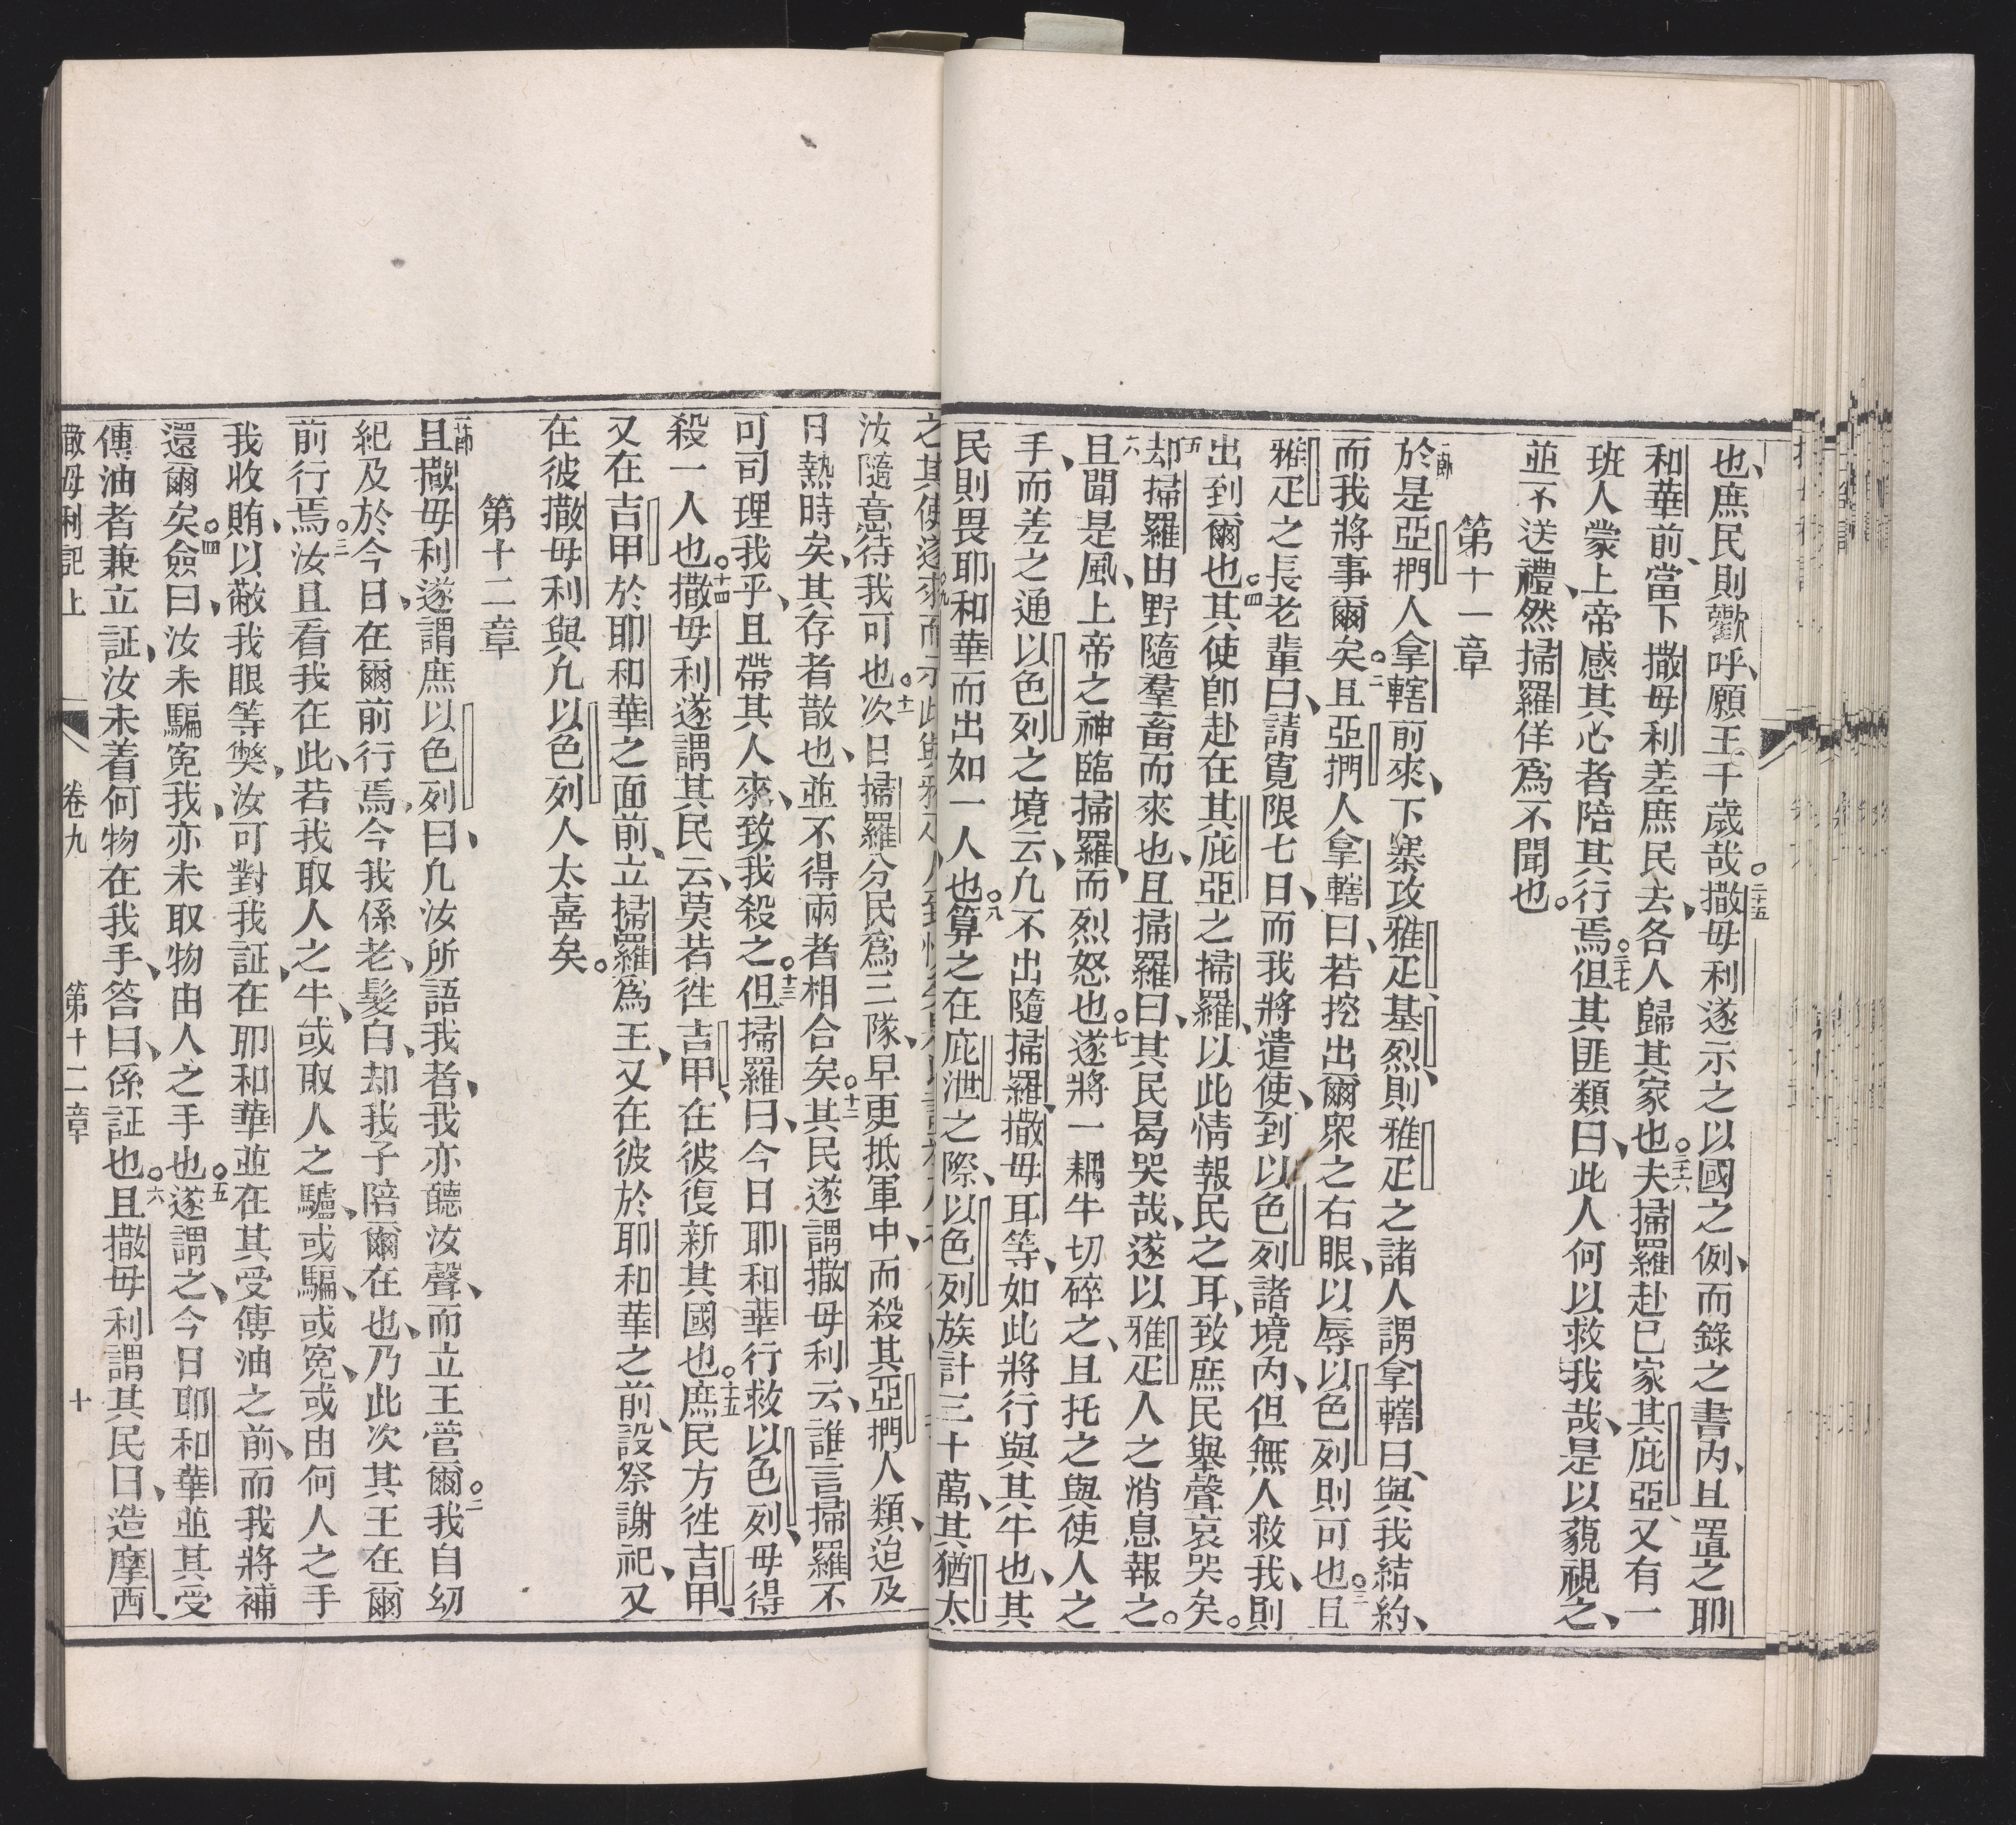 也、庶民則歡呼、願王千歲哉。二十五撒母利遂示之以國之例、而錄之書內、且置之耶
和華前、當下撒母利差庶民去、各人歸其家也。二十六夫掃羅赴已家其庇亞、又有一
班人蒙上帝感其心者陪其行焉。二十七但其匪類曰、此人何以救我哉、是以藐視之、
並不送禮、然掃羅佯為不聞也。
第十一章
一節於是亞捫人拿轄前來、下寨攻雅疋、基烈、則雅疋之諸人謂拿轄曰、與我結約、
而我將事爾矣。二且亞捫人拿轄曰、若挖出爾衆之右眼、以辱以色列則可也。三且
雅疋之長老輩曰、請寬限七日、而我將遣使、到以色列諸境內、但無人救我、則
出到爾也。四其使卽赴在其庇亞之掃羅、以此情報民之耳、致庶民舉聲哀哭矣。
五却掃羅由野隨羣畜而來也、且掃羅曰、其民曷哭哉、遂以雅疋人之消息報之。
六且聞是風、上帝之神臨掃羅、而烈怒也。七遂將一耦牛切碎之、且托之與使人之
手、而差之通以色列之境云、凢不出隨掃羅、撒母耳等、如此將行與其牛也、其
民則畏耶和華而出如一人也。八算之在庇泄之際、以色列族計三十萬、其猶太
汝隨意待我可也。十一次日掃羅分民為三隊、早更抵軍中、而殺其亞捫人類、迨及
日熱時矣、其存者散也、並不得兩者相合矣。十二其民遂謂撒母利云、誰言掃羅不
可司理我乎、且帶其人來、致我殺之。十三但掃羅曰、今日耶和華行救以色列、毋得
殺一人也。十四撒母利遂謂其民云、莫若徃吉甲、在彼復新其國也。十五庶民方徃吉甲、
又在吉甲於耶和華之面前、立掃羅為王、又在彼於耶和華之前、設祭謝祀、又
在彼撒母利與凢以色列人太喜矣。
第十二章
一節且撒母利遂謂庶以色列曰、凢汝所語我者、我亦聽汝聲、而立王管爾。二我自幼
紀及於今日、在爾前行焉、今我係老、髮白、却我子陪爾在也、乃此次其王在爾
前行焉。三汝且看我在此、若我取人之牛、或取人之驢、或騙、或寃、或由何人之手
我收賄、以蔽我眼等獘、汝可對我証、在耶和華並在其受傳油之前、而我將補
還爾矣。四僉曰、汝未騙寃我、亦未取物由人之手也。五遂謂之、今日耶和華並其受
傳油者兼立証、汝未着何物在我手、答曰、係証也。六且撒母利謂其民曰、造摩西、
撒母利記上 卷九 第十二章 十